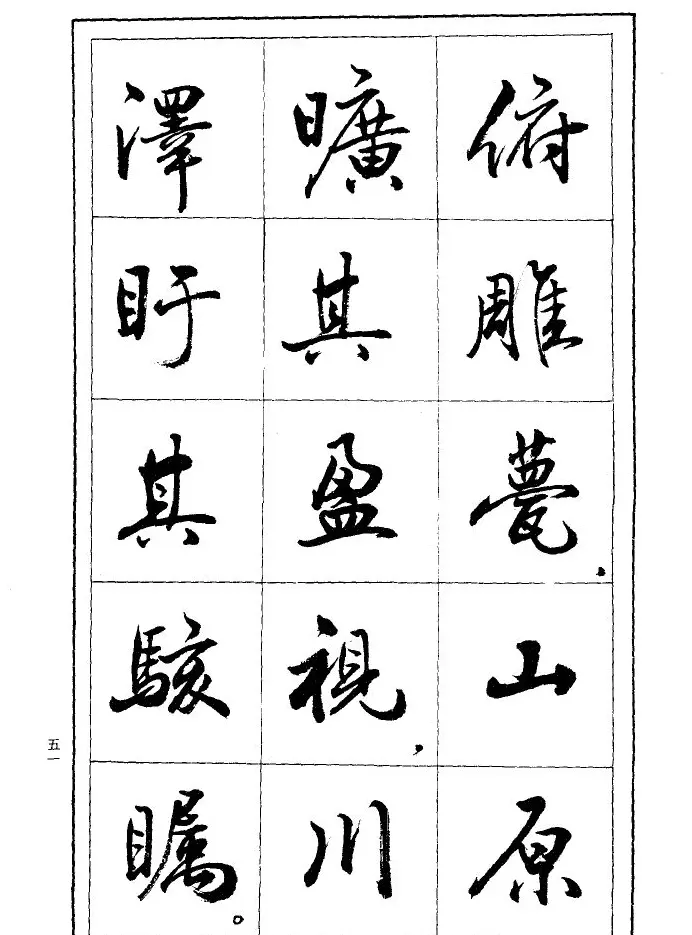 俯雕甍,山原
曠其盈視,川
澤盱其駭矚。
五一